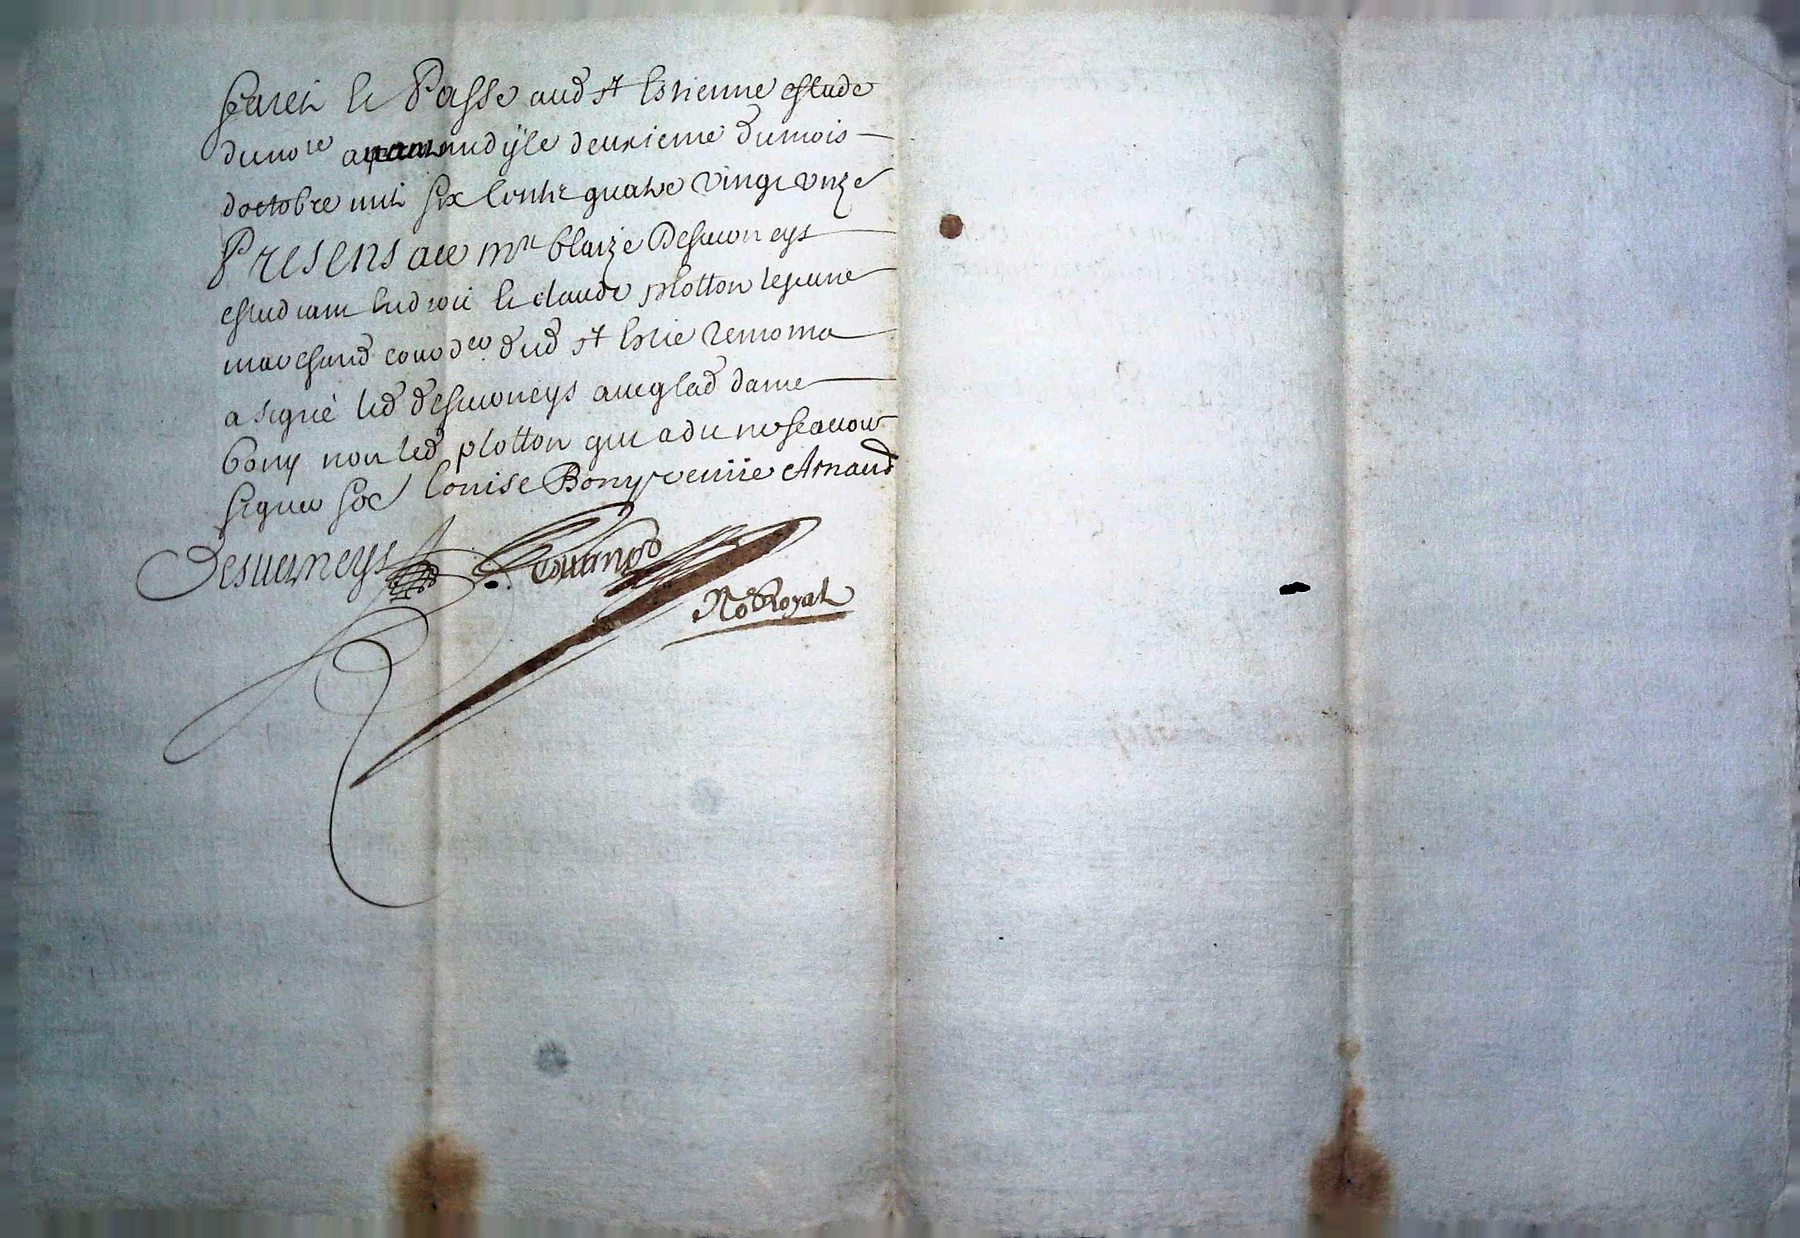 et Passe aud st Estienne estude
du nore midy le deuxieme du mois
doctobre mil six cents quatre vingt unze
Presens a ce mre Blaize Desverneys
estudiant en droit et claude plotton le jeune
marchand dud st Estie
a signé led desverneys avec lad dame
Bony non led plotton qui a du ne scavoir
signer Louise Bony veuue Arnaud
Desverneys
No Royal